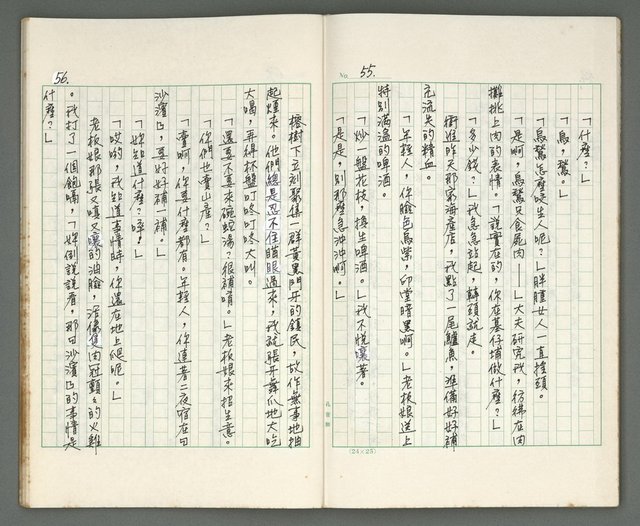 No. 55.
「什麼？」
「鳥，鶖。」
「鳥鶖怎麼啖生人呢？」胖腫女人一直搖頭。
「是啊，鳥鶖只食屍肉——」大夫研究我，彷彿在肉
攤挑上肉的表情。「說實在的，你在墓仔埔做什麼？」
「多少錢？」我急急站起，轉頭就走。
衝進昨天那家海產店，我點了一尾鱸魚，準備好好補
充流失的精血。
「年輕人，你臉色烏紫，印堂暗黑啊。」老板娘送上
特別滿溢的啤酒。
「炒一盤花枝，接生啤酒。」我不悅嚷著。
「是是，別那麼急沖沖啊。」
(24×25)
56.
榕樹下立刻聚集一群黃黑門牙的鎮民，故作無事地抽
起煙來。他們總是忍不住瞄眼過來，我就張牙舞爪地大吃
大喝，弄得杯盤叮咚叮咚大叫。
「還要不要來碗蛇湯？很補唷。」老板娘來招生意。
「你們也賣山產？」
「賣啊，你要什麼都有。年輕人，你連著二夜宿在白
沙濱凸，要好好補一補。」
「妳知道什麼？哼。」
「哎喲，我知道事情時，你還在地上爬呢。」
老板娘那張又嘎又嚷的油臉，活像隻肉冠顫顫的火雞
。我打了一個飽嗝，「妳倒說說看，那白沙濱凸的事情是
什麼？」